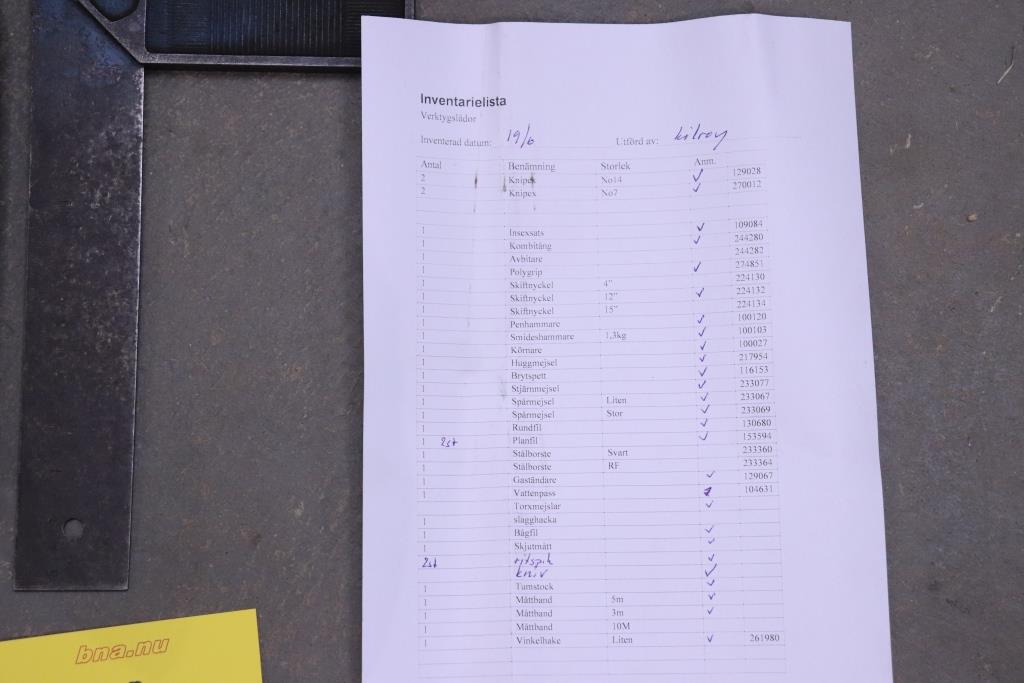 Inventarielista
Verktygslådor
Inventerad datum: 19/6 Utförd av: kilroy
Antal Benämning Storlek Anm.
2 Knipex No14 ✓ 129028
2 Knipex No7 ✓ 270012
1 Insexsats ✓ 109084
1 Kombitång ✓ 244280
1 Avbitare 244282
1 Polygrip ✓ 274851
1 Skiftnyckel 4" 224130
1 Skiftnyckel 12" ✓ 224132
1 Skiftnyckel 15" 224134
1 Penhammare ✓ 100120
1 Smideshammare 1,3kg ✓ 100103
1 Körnare ✓ 100027
1 Huggmejsel ✓ 217954
1 Brytspett ✓ 116153
1 Stjärnmejsel ✓ 233077
1 Spårmejsel Liten ✓ 233067
1 Spårmejsel Stor ✓ 233069
1 Rundfil ✓ 130680
1 2st Planfil ✓ 153594
1 Stålborste Svart 233360
1 Stålborste RF 233364
1 Gaständare ✓ 129067
1 Vattenpass 104631
Torxmejslar ✓
1 slagghacka
1 Bågfil ✓
1 Skjutmått ✓
2st ritspik ✓
kniv ✓
1 Tumstock ✓
1 Måttband 5m ✓
1 Måttband 3m ✓
1 Måttband 10M
1 Vinkelhake Liten ✓ 261980
bna.nu